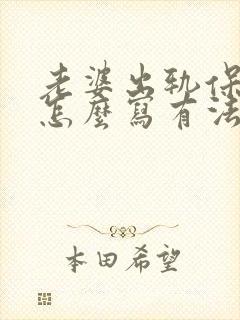 老婆出軌保
怎麼寫有法
本田希望